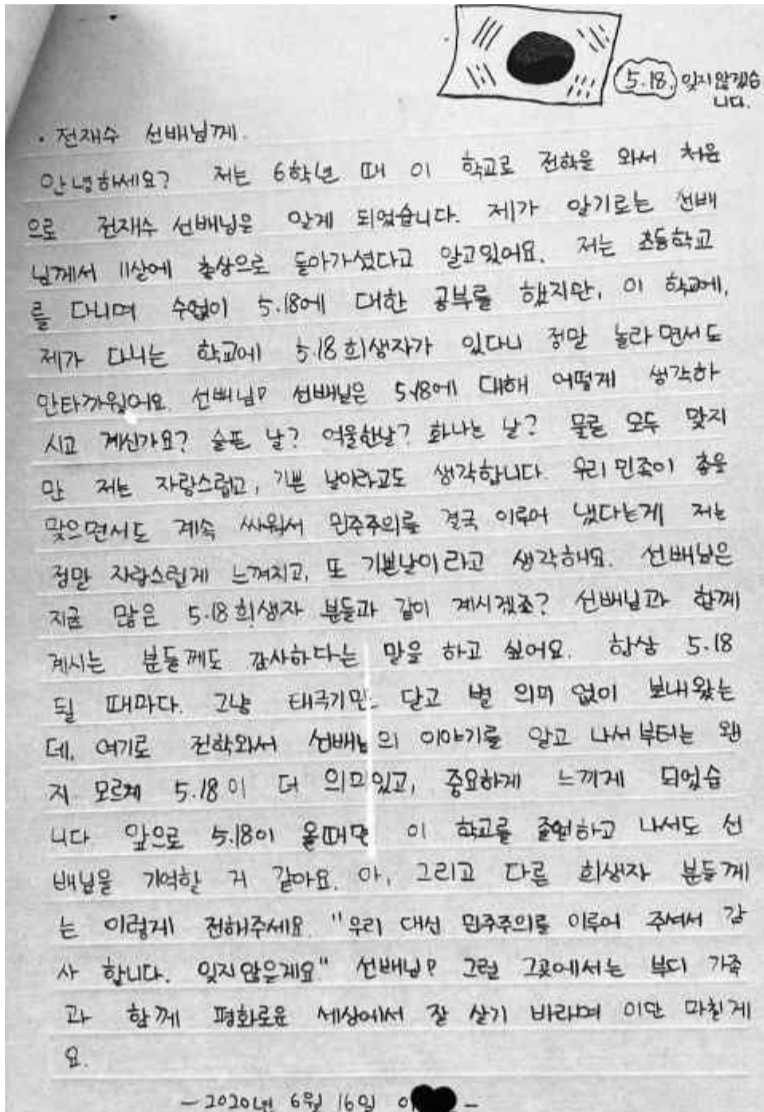 5.18. 잊지않겠습
니다.
· 전재수 선배님께.
안녕하세요? 저는 6학년 때 이 학교로 전학을 와서 처음
으로 전재수 선배님은 알게 되었습니다. 제가 알기로는 선배
님께서 11살에 총상으로 돌아가셨다고 알고있어요. 저는 초등학교
를 다니며 수없이 5.18에 대한 공부를 했지만, 이 학교에,
제가 다니는 학교에 5.18 희생자가 있다니 정말 놀라면서도
안타까웠어요. 선배님? 선배님은 5.18에 대해 어떻게 생각하
시고 계신가요? 슬픈 날? 억울한날? 화나는 날? 물론 모두 맞지
만 저는 자랑스럽고, 기쁜 날이라고도 생각합니다. 우리 민족이 총을
맞으면서도 계속 싸워서 민주주의를 결국 이루어 냈다는게 저는
정말 자랑스럽게 느껴지고, 또 기쁜날이라고 생각해요. 선배님은
지금 많은 5.18 희생자 분들과 같이 계시겠죠? 선배님과 함께
계시는 분들께도 감사하다는 말을 하고 싶어요. 항상 5.18
될 때마다. 그냥 태극기만 달고 별 의미 없이 보내왔는
데, 여기로 전학와서 선배님의 이야기를 알고 나서부터는 왠
지 모르게 5.18이 더 의미있고, 중요하게 느끼게 되었습
니다 앞으로 5.18이 올때면 이 학교를 졸업하고 나서도 선
배님을 기억할 거 같아요. 아, 그리고 다른 희생자 분들께
는 이렇게 전해주세요 "우리 대신 민주주의를 이루어 주셔서 감
사 합니다. 잊지않을게요" 선배님? 그럼 그곳에서는 부디 가족
과 함께 평화로운 세상에서 잘 살기 바라며 이만 마칠게
요.
- 2020년 6월 16일 이 -